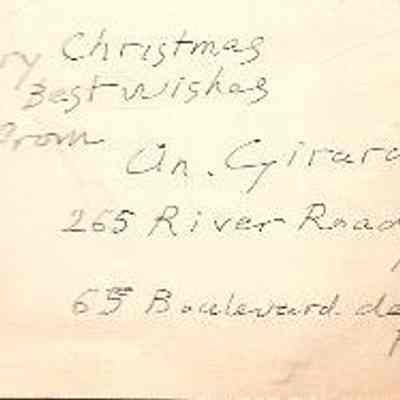 ry Christmas
Best Wishes
From
An. Girard
265 River Road
65 Boulevard de